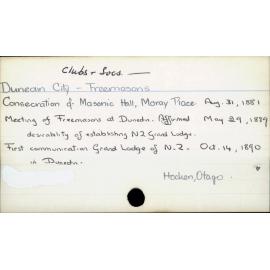 Clubs & Socs.
Dunedin City - Freemasons
Consecration of Masonic Hall, Moray Place Aug. 31, 1881
Meeting of Freemasons at Dunedin. Affirmed May 29, 1889
desirability of establishing NZ Grand Lodge.
First communication Grand Lodge of N.Z. Oct. 14, 1890
in Dunedin.
Hocken, Otago.